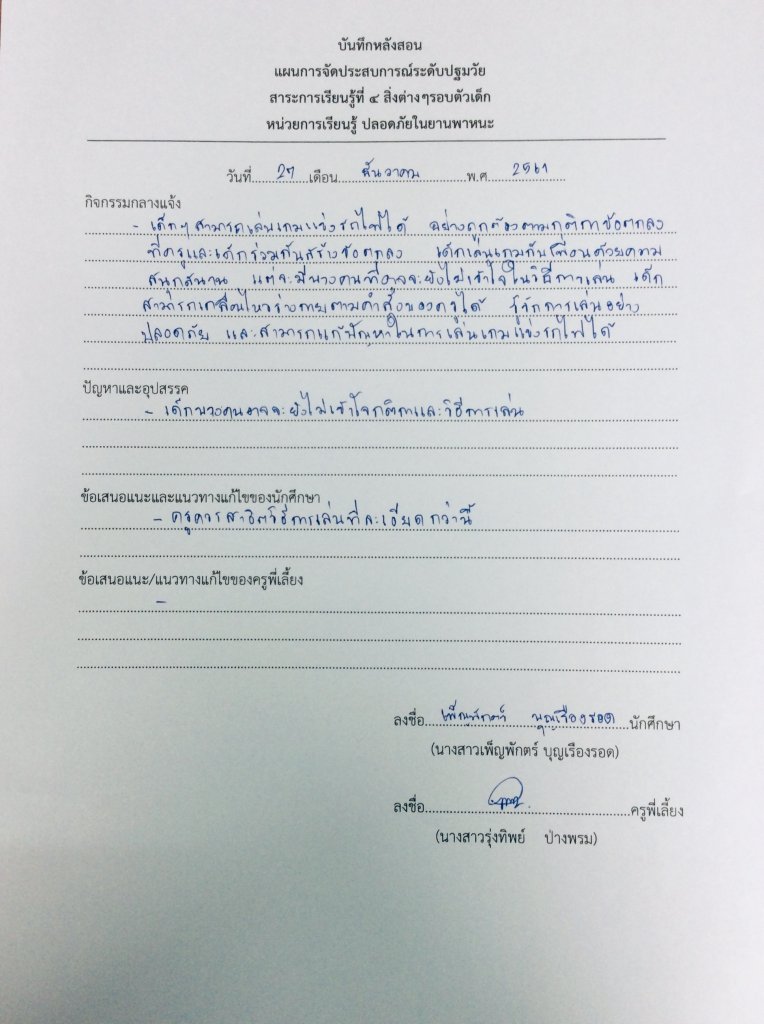 บันทึกหลังสอน
แผนการจัดประสบการณ์ระดับปฐมวัย
สาระการเรียนรู้ที่ ๔ สิ่งต่างๆรอบตัวเด็ก
หน่วยการเรียนรู้ ปลอดภัยในยานพาหนะ
วันที่ 27 เดือน ธันวาคม พ.ศ. 2561
กิจกรรมกลางแจ้ง
- เด็กๆ สามารถเล่นเกมแข่งรถไฟได้ อย่างถูกต้องตามกติกาข้อตกลง
ที่ครูและเด็กร่วมกันสร้างข้อตกลง เด็กเล่นเกมกับเพื่อนด้วยความ
สนุกสนาน แต่จะมีบางคนที่อาจจะยังไม่เข้าใจในวิธีการเล่น เด็ก
สามารถเคลื่อนไหวร่างกายตามคำสั่งของครูได้ รู้จักการเล่นอย่าง
ปลอดภัย และสามารถแก้ปัญหาในการเล่นเกมแข่งรถไฟได้
ปัญหาและอุปสรรค
- เด็กบางคนอาจจะยังไม่เข้าใจกติกาและวิธีการเล่น
ข้อเสนอแนะและแนวทางแก้ไขของนักศึกษา
- ครูควรสาธิตวิธีการเล่นที่ละเอียดกว่านี้
ข้อเสนอแนะ/แนวทางแก้ไขของครูพี่เลี้ยง
-
ลงชื่อ เพ็ญพักตร์ บุญเรืองรอด นักศึกษา
(นางสาวเพ็ญพักตร์ บุญเรืองรอด)
ลงชื่อ ครูพี่เลี้ยง
(นางสาวรุ่งทิพย์ ป่างพรม)